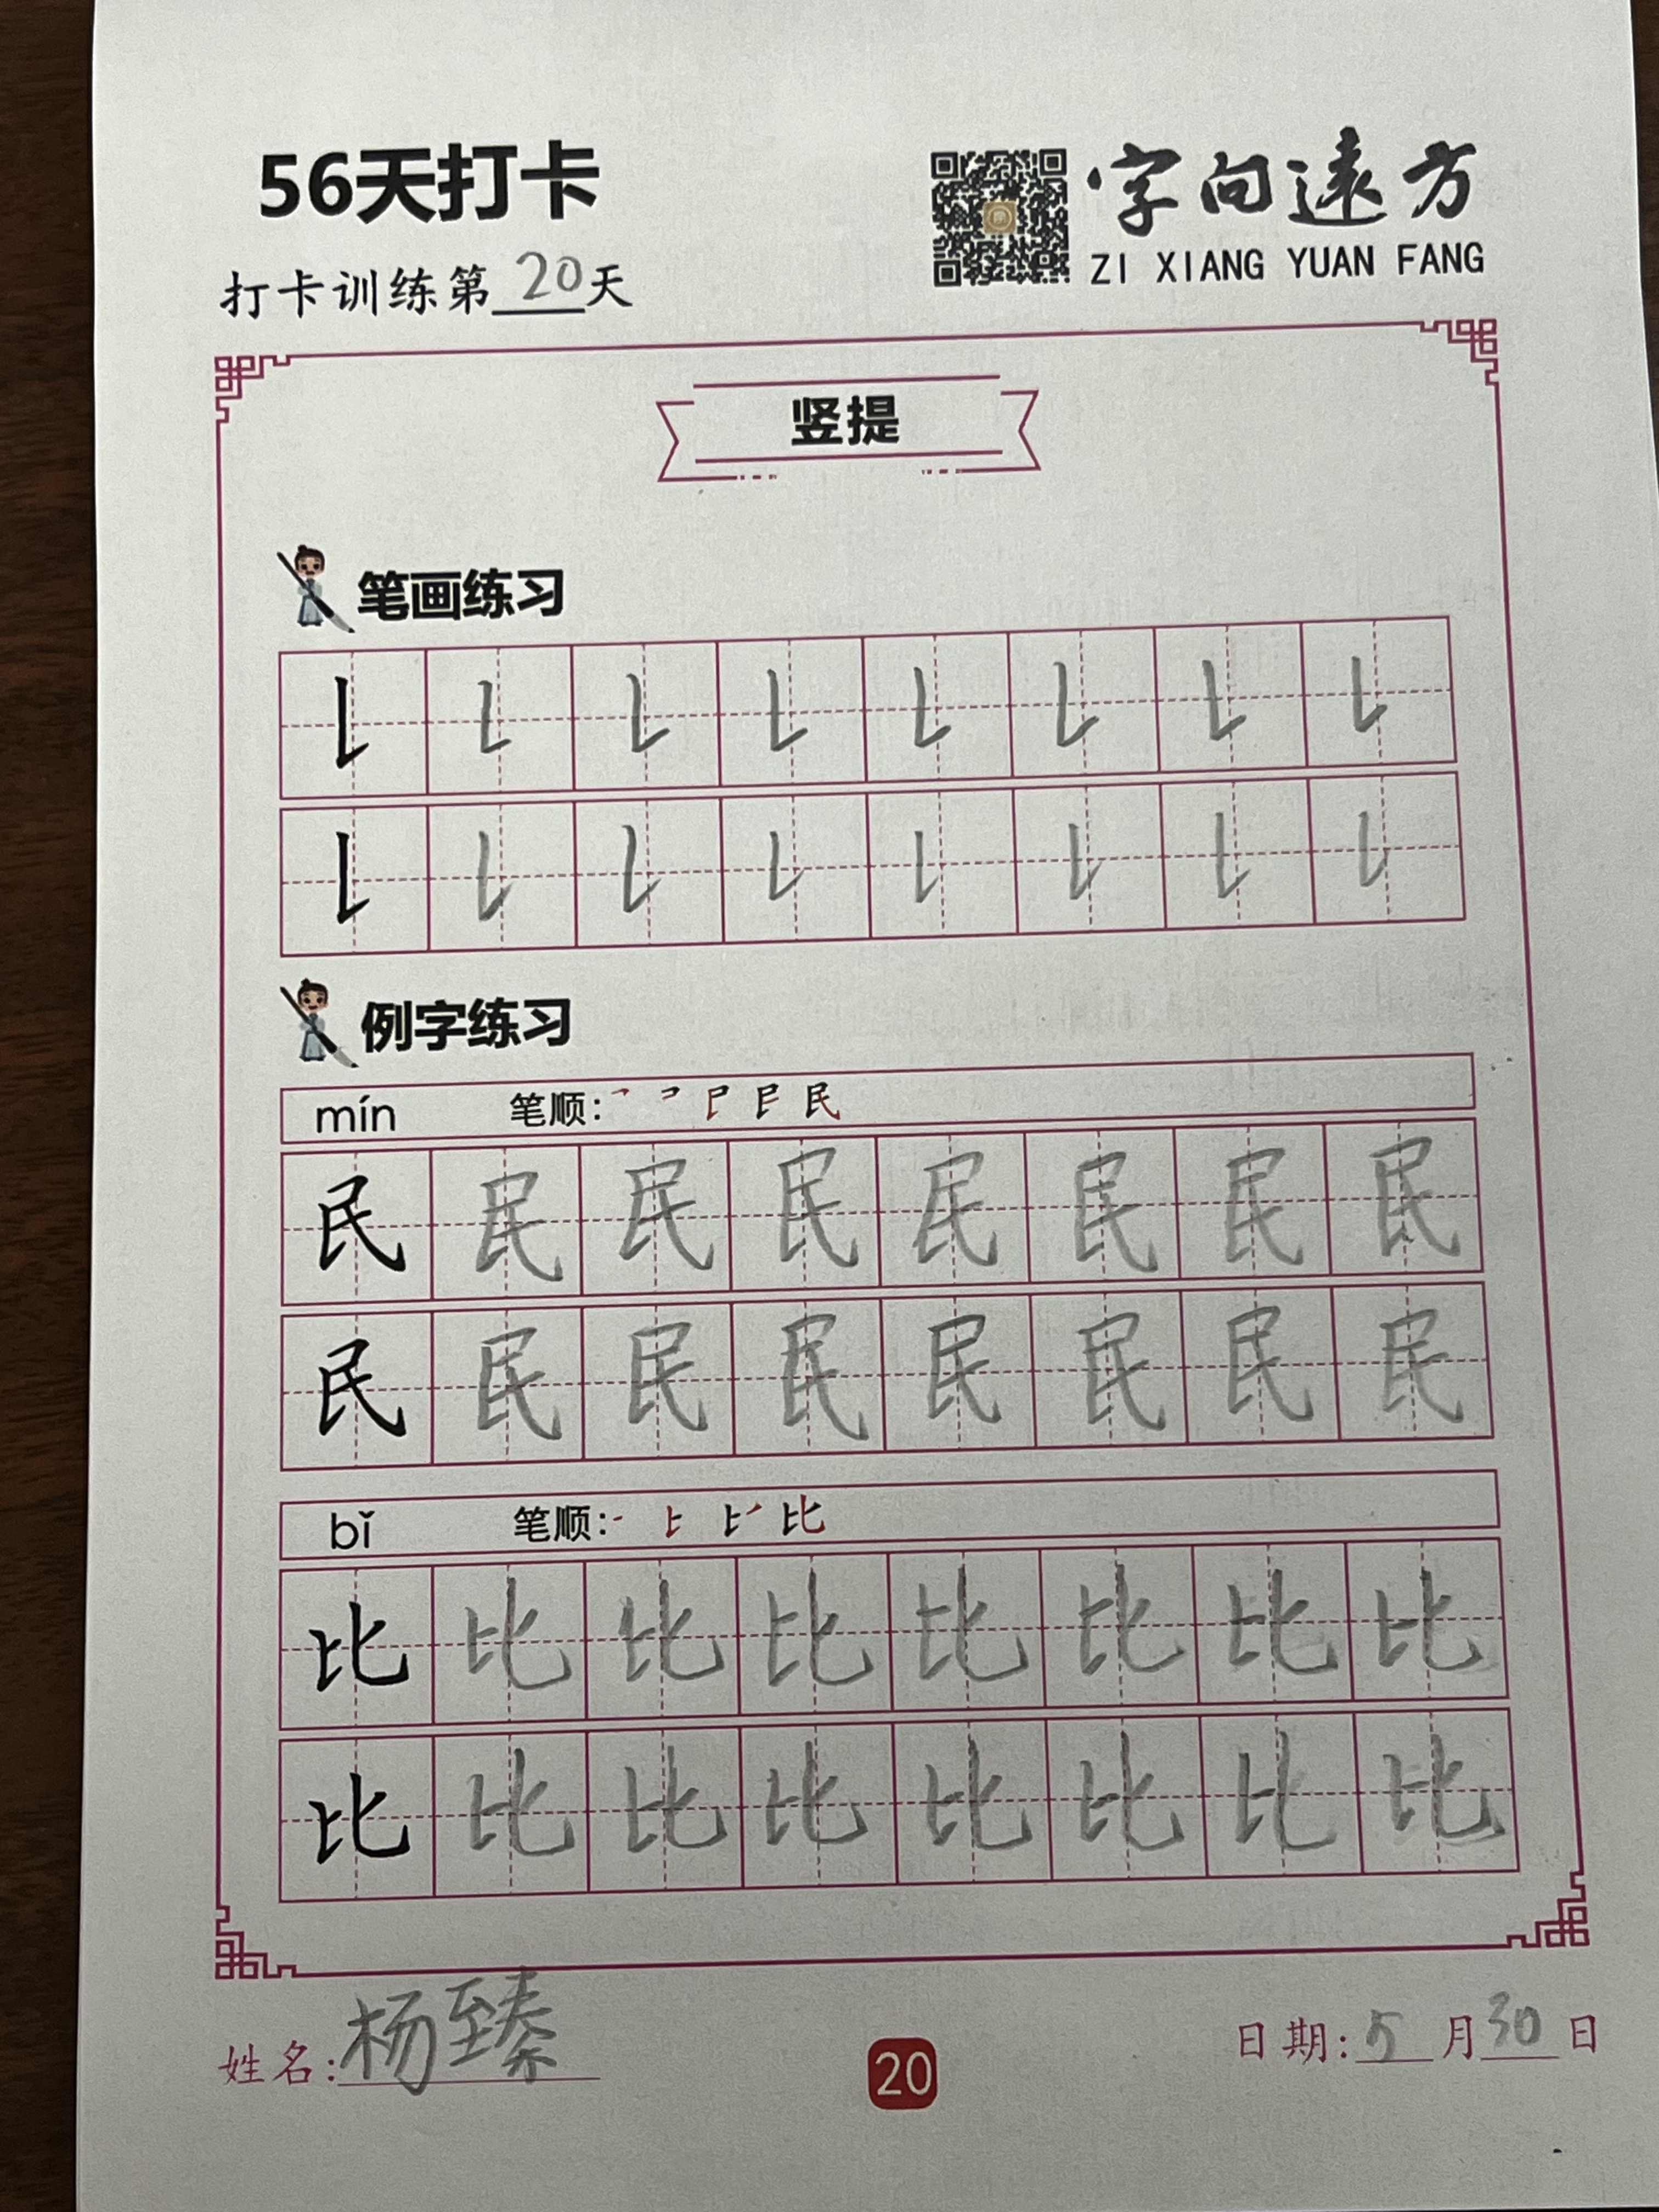 56天打卡
字向远方
ZI XIANG YUAN FANG
打卡训练第20天
竖提
笔画练习
例字练习
mín 笔顺:
民 民 民 民 民 民 民 民
民 民 民 民 民 民 民 民
bǐ 笔顺:
比 比 比 比 比 比 比 比
比 比 比 比 比 比 比 比
姓名:杨臻
20
日期:5月30日